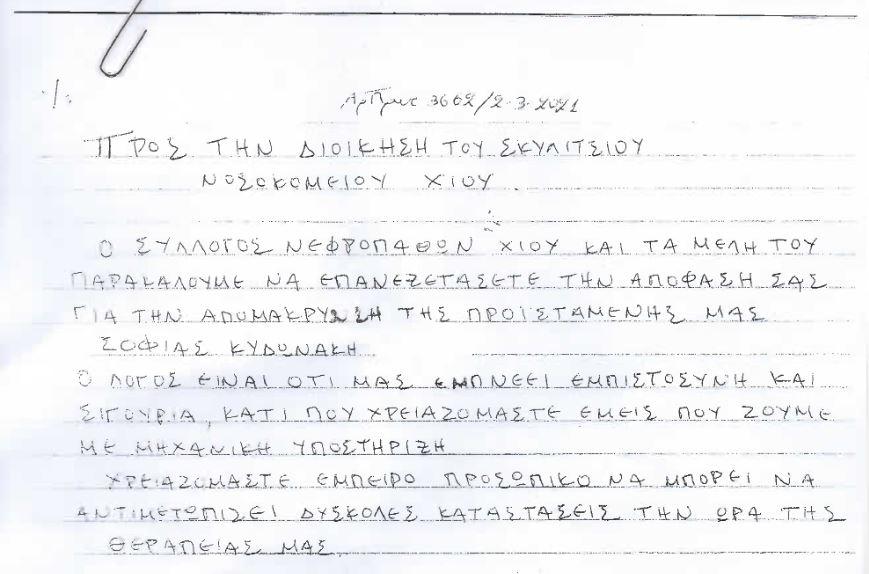 ./.
Αρ Πρωτ 3662/2.3.2021
ΠΡΟΣ ΤΗΝ ΔΙΟΙΚΗΣΗ ΤΟΥ ΣΚΥΛΙΤΣΕΙΟΥ
ΝΟΣΟΚΟΜΕΙΟΥ ΧΙΟΥ
Ο ΣΥΛΛΟΓΟΣ ΝΕΦΡΟΠΑΘΩΝ ΧΙΟΥ ΚΑΙ ΤΑ ΜΕΛΗ ΤΟΥ
ΠΑΡΑΚΑΛΟΥΜΕ ΝΑ ΕΠΑΝΕΖΕΤΑΣΕΤΕ ΤΗΝ ΑΠΟΦΑΣΗ ΣΑΣ
ΓΙΑ ΤΗΝ ΑΠΟΜΑΚΡΥΝΣΗ ΤΗΣ ΠΡΟΙΣΤΑΜΕΝΗΣ ΜΑΣ
ΣΟΦΙΑΣ ΚΥΔΩΝΑΚΗ
Ο ΛΟΓΟΣ ΕΙΝΑΙ ΟΤΙ ΜΑΣ ΕΜΠΝΕΕΙ ΕΜΠΙΣΤΟΣΥΝΗ ΚΑΙ
ΣΙΓΟΥΡΙΑ, ΚΑΤΙ ΠΟΥ ΧΡΕΙΑΖΟΜΑΣΤΕ ΕΜΕΙΣ ΠΟΥ ΖΟΥΜΕ
ΜΕ ΜΗΧΑΝΙΚΗ ΥΠΟΣΤΗΡΙΖΗ
ΧΡΕΙΑΖΟΜΑΣΤΕ ΕΜΠΕΙΡΟ ΠΡΟΣΩΠΙΚΟ ΝΑ ΜΠΟΡΕΙ ΝΑ
ΑΝΤΙΜΕΤΩΠΙΣΕΙ ΔΥΣΚΟΛΕΣ ΚΑΤΑΣΤΑΣΕΙΣ ΤΗΝ ΩΡΑ ΤΗΣ
ΘΕΡΑΠΕΙΑΣ ΜΑΣ.